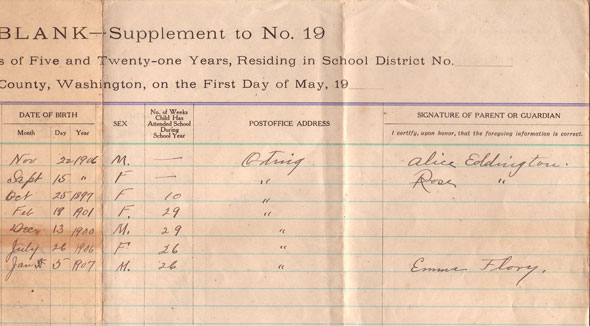 BLANK—Supplement to No. 19
s of Five and Twenty-one Years, Residing in School District No.
County, Washington, on the First Day of May, 19
DATE OF BIRTH
Month Day Year
SEX
No. of Weeks Child Has Attended School During School Year
POSTOFFICE ADDRESS
SIGNATURE OF PARENT OR GUARDIAN
I certify, upon honor, that the foregoing information is correct.
Nov 22 1906 M. — Orting Alice Eddington.
Sept 15 " F — " Rose "
Oct 25 1897 F 10 "
Feb 18 1901 F. 29 "
Dec 13 1900 M. 29 "
July 26 1906 F 26 "
Jan 5 1907 M. 26 " Emma Flory.